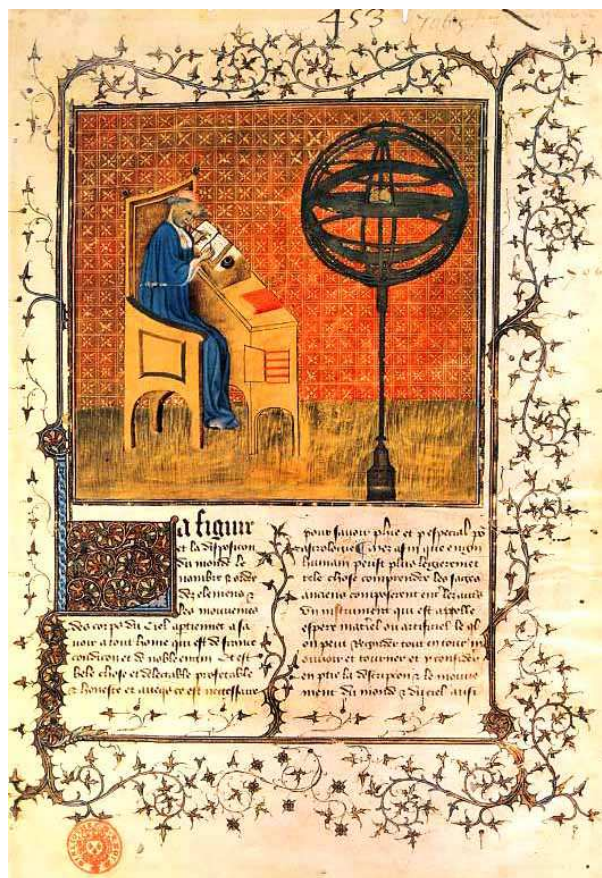 453
7065
La figure
et la disposicion
du monde le
nombre & ordre
des elemens &
les mouvemens
des corps du ciel aptiennent a sa
voir a tout home qui est de france
condicion et de noble engin Et est
bele chose et delectable profetable
& honeste et avecq̃s ce est necessaire
pour savoir plus et p especial po
astrologie Et affin que engin
humain peust plus legerement
tele chose comprendre les sages
anciens composerent
un instrument qui est appelle
espere materiel ou artificiel le ql
on peut regarder tout entour
mouvoir et tourner et y considerer
en ptie la discripcion & le mouve
ment du monde & du ciel ainsi